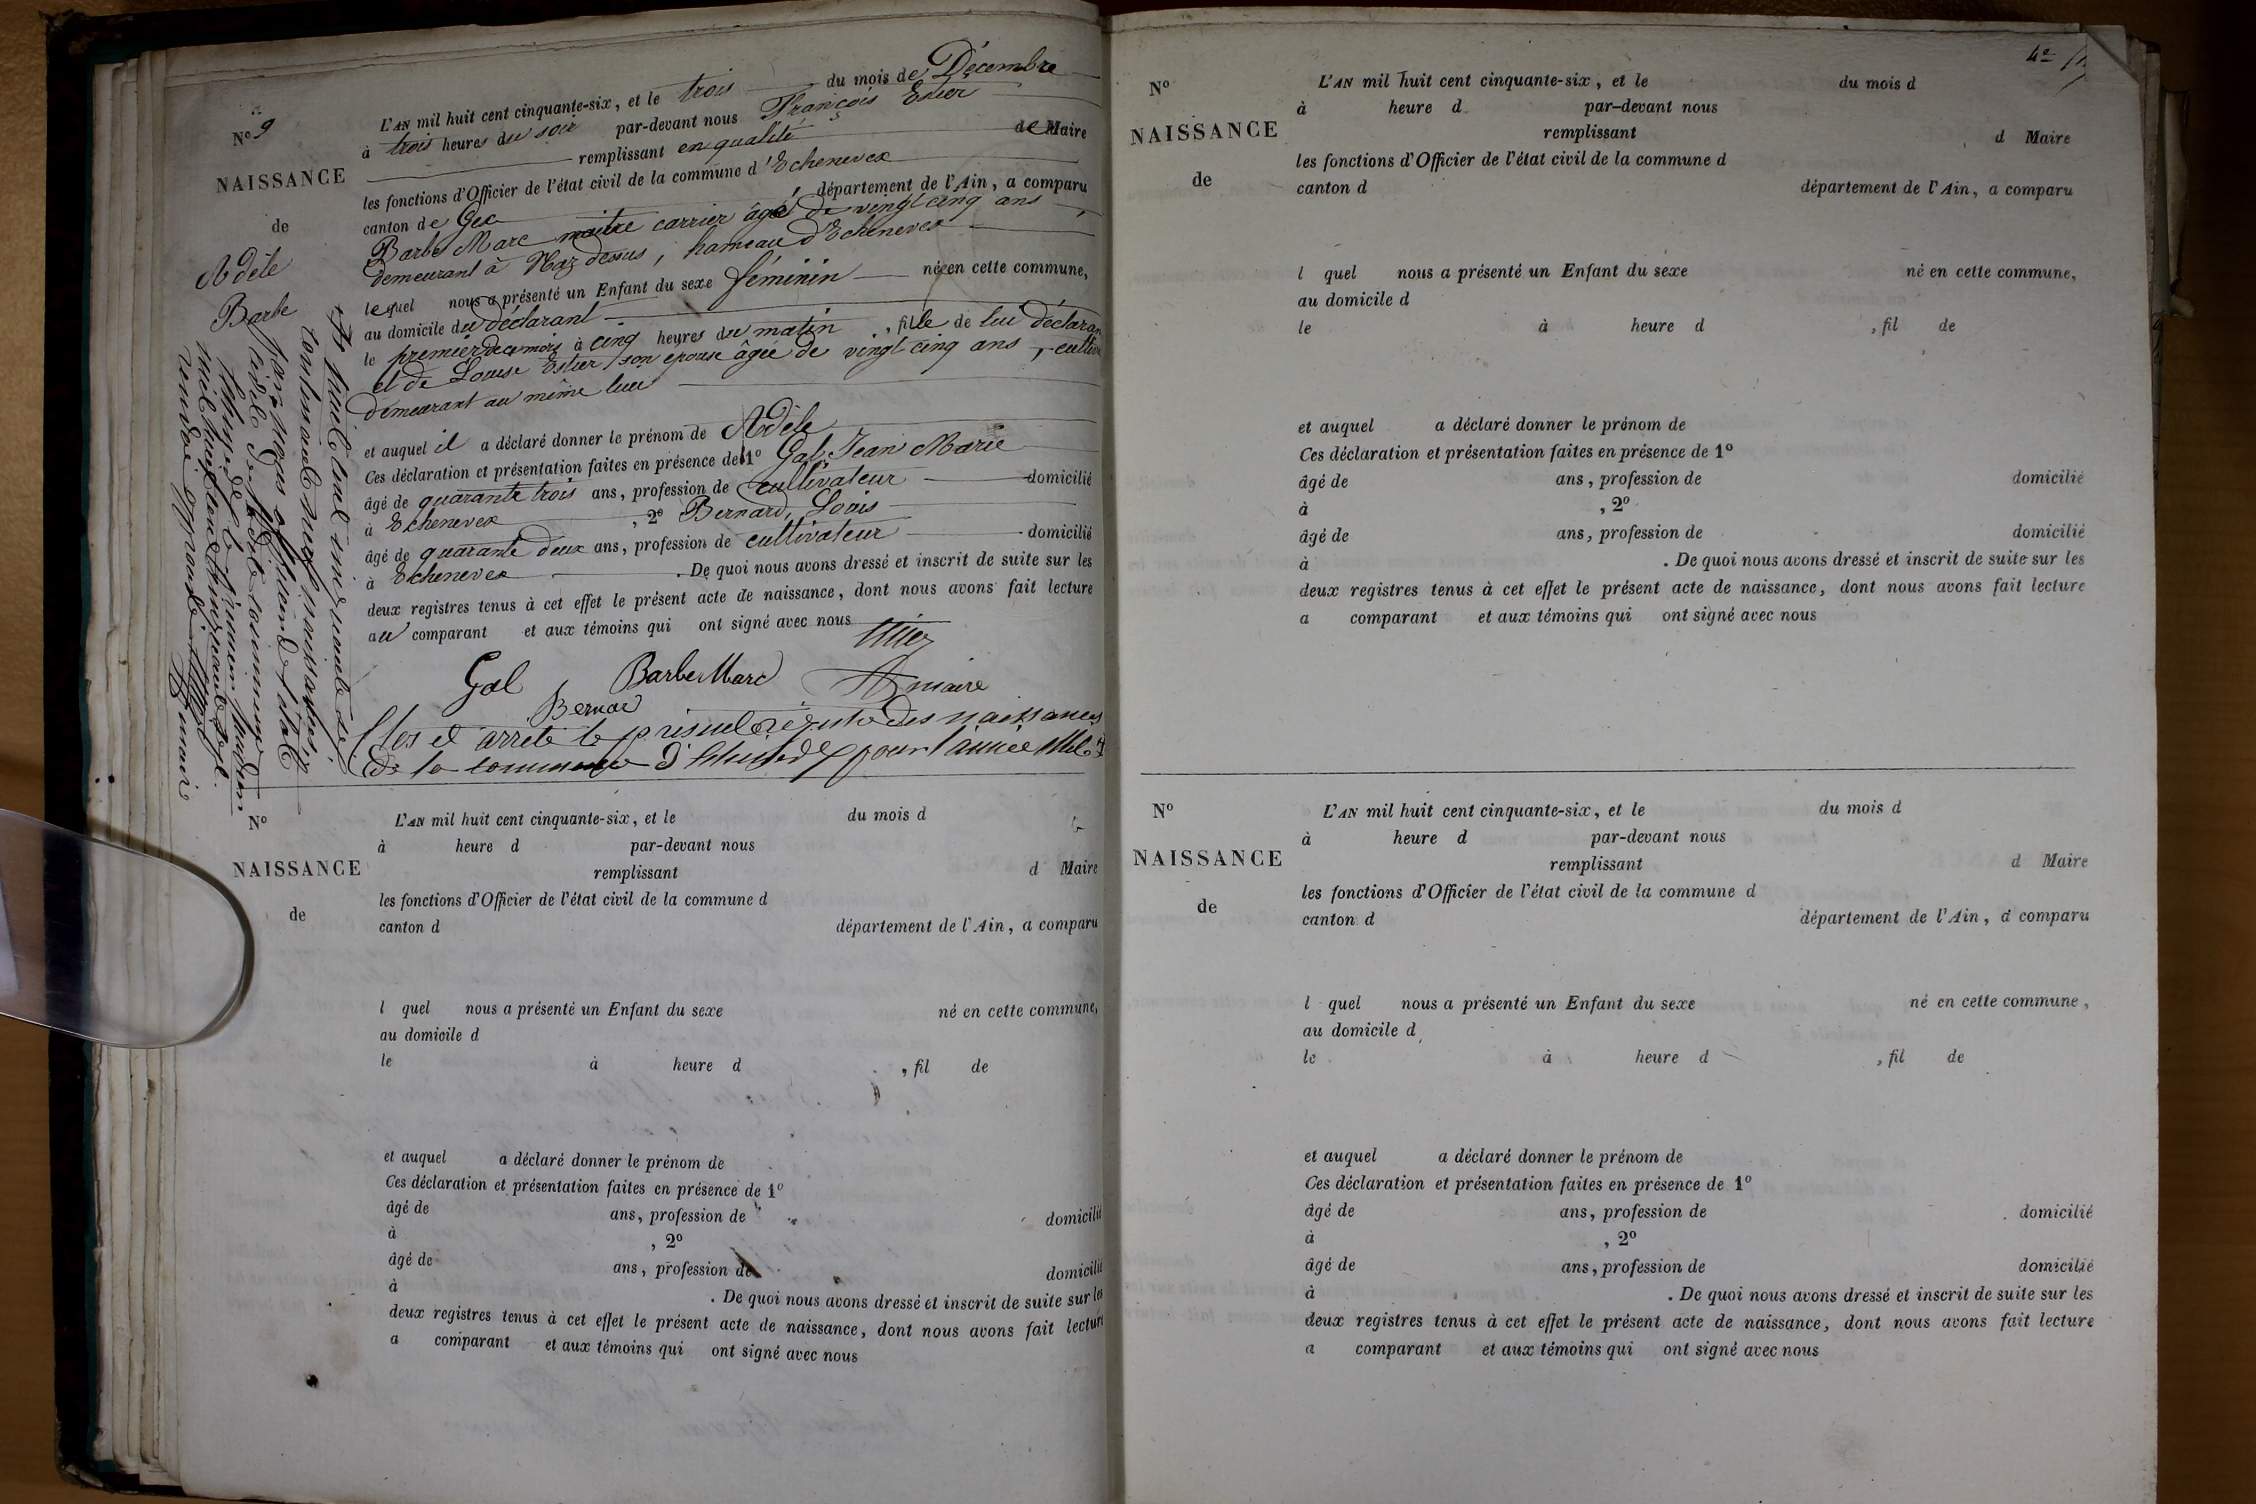 N° 9
NAISSANCE
de
Adèle
Barbe
L'AN mil huit cent cinquante-six, et le trois du mois de Décembre
à trois heures du soir par-devant nous François Estier
remplissant en qualité de Maire
les fonctions d'Officier de l'état civil de la commune d'Echenevex
canton de Gex département de l'Ain, a comparu
Barbe Marc maitre carrier âgé de vingt cinq ans
demeurant à Naz dessus, hameau d'Echenevex
lequel nous a présenté un Enfant du sexe féminin née en cette commune,
au domicile du déclarant
le premier de ce mois à cinq heures du matin, fille de lui déclaran
et de Louise Estier, son épouse âgée de vingt cinq ans,
demeurant au même lieu
et auquel il a déclaré donner le prénom de Adèle
Ces déclaration et présentation faites en présence de 1° Gal, Jean Marie
âgé de quarante trois ans, profession de cultivateur domicilié
à Echenevex, 2° Bernard, Louis
âgé de quarante deux ans, profession de cultivateur domicilié
à Echenevex. De quoi nous avons dressé et inscrit de suite sur les
deux registres tenus à cet effet le présent acte de naissance, dont nous avons fait lecture
au comparant et aux témoins qui ont signé avec nous
Gal Barbe Marc maire
Bernar
Clos et arrêté le présent régistre des naissances
de la commune d' pour l'année Mil
N°
NAISSANCE
de
L'AN mil huit cent cinquante-six, et le du mois d
à heure d par-devant nous
remplissant d Maire
les fonctions d'Officier de l'état civil de la commune d
canton d département de l'Ain, a comparu
l quel nous a présenté un Enfant du sexe né en cette commune,
au domicile d
le à heure d , fil de
et auquel a déclaré donner le prénom de
Ces déclaration et présentation faites en présence de 1°
âgé de ans, profession de domicilié
à , 2°
âgé de ans, profession de domicilié
à . De quoi nous avons dressé et inscrit de suite sur les
deux registres tenus à cet effet le présent acte de naissance, dont nous avons fait lecture
a comparant et aux témoins qui ont signé avec nous
N°
NAISSANCE
de
L'AN mil huit cent cinquante-six, et le du mois d
à heure d par-devant nous
remplissant d Maire
les fonctions d'Officier de l'état civil de la commune d
canton d département de l'Ain, a comparu
l quel nous a présenté un Enfant du sexe né en cette commune,
au domicile d
le à heure d , fil de
et auquel a déclaré donner le prénom de
Ces déclaration et présentation faites en présence de 1°
âgé de ans, profession de domicilié
à , 2°
âgé de ans, profession de domicilié
à . De quoi nous avons dressé et inscrit de suite sur les
deux registres tenus à cet effet le présent acte de naissance, dont nous avons fait lecture
a comparant et aux témoins qui ont signé avec nous
N°
NAISSANCE
de
L'AN mil huit cent cinquante-six, et le du mois d
à heure d par-devant nous
remplissant d Maire
les fonctions d'Officier de l'état civil de la commune d
canton d département de l'Ain, a comparu
l quel nous a présenté un Enfant du sexe né en cette commune,
au domicile d
le à heure d , fil de
et auquel a déclaré donner le prénom de
Ces déclaration et présentation faites en présence de 1°
âgé de ans, profession de domicilié
à , 2°
âgé de ans, profession de domicilié
à . De quoi nous avons dressé et inscrit de suite sur les
deux registres tenus à cet effet le présent acte de naissance, dont nous avons fait lecture
a comparant et aux témoins qui ont signé avec nous